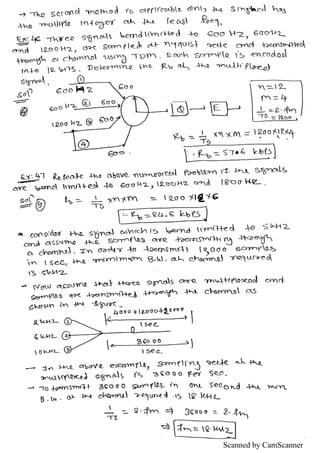 → The second method is applicable only the singhal has
the multiple integer of the least freq.
Ex:46 Three signals bandlimited to 600 HZ, 600HZ
and 1200 HZ, are sampled at nyquist rate and transmitted
through a channel using TDM. Each sample is encoded
into 12 bits. Determine the Rb of the multiplexed
signal.
Sol
①
600 HZ
600
600 HZ ② 600
1200 HZ ③ 600
④
600
Q
E
n=12
m=4
1/Ts = 2·fm = 1200
Rb = 1/Ts × n × m = 1200×12×4
∴ Rb = 57.6 kbps
Ex:47 Repeate the above numerical Problem if the signals
are band limited to 600HZ, 1200HZ and 1800 HZ.
Sol
Rb = 1/Ts × n×m = 1200×12×6
∴ Rb = 86.4 kbps
* consider the signal which is band limited to 5kHZ
and assume the samples are transmitting through
a channel. In order to transmit 10,000 samples
in 1 sec, the minimum B.W. of channel required
is 5kHZ
- Now assume that three signals are multiplexed and
samples are transmitted through the channel as
shown in the figure.
4000+12000+20000
2kHZ ①
1 sec
6 kHZ ②
36000
10kHZ ③
1 sec.
- In the above example, sampling rate of the
multiplexed signals is 36000 Per sec.
- To transmit 36000 samples in one second the min
B.W. of the channel required is 18 kHZ
1/Ts = 2·fm ⇒ 36000 = 2·fm
⇒ fm = 18 kHZ
Scanned by CamScanner